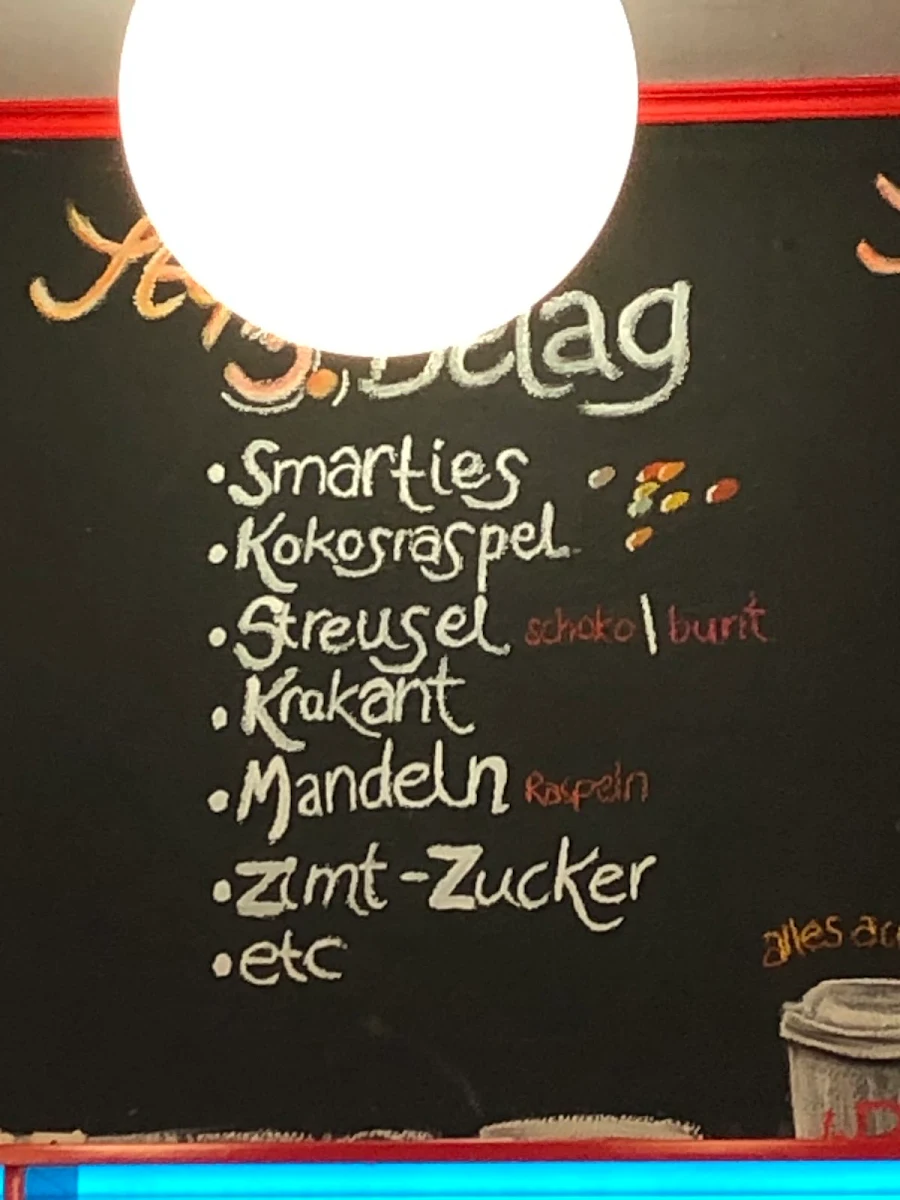 Belag
• Smarties
• Kokosraspel
• Streusel schoko | bunt
• Krokant
• Mandeln Raspeln
• Zimt-Zucker
• etc
alles